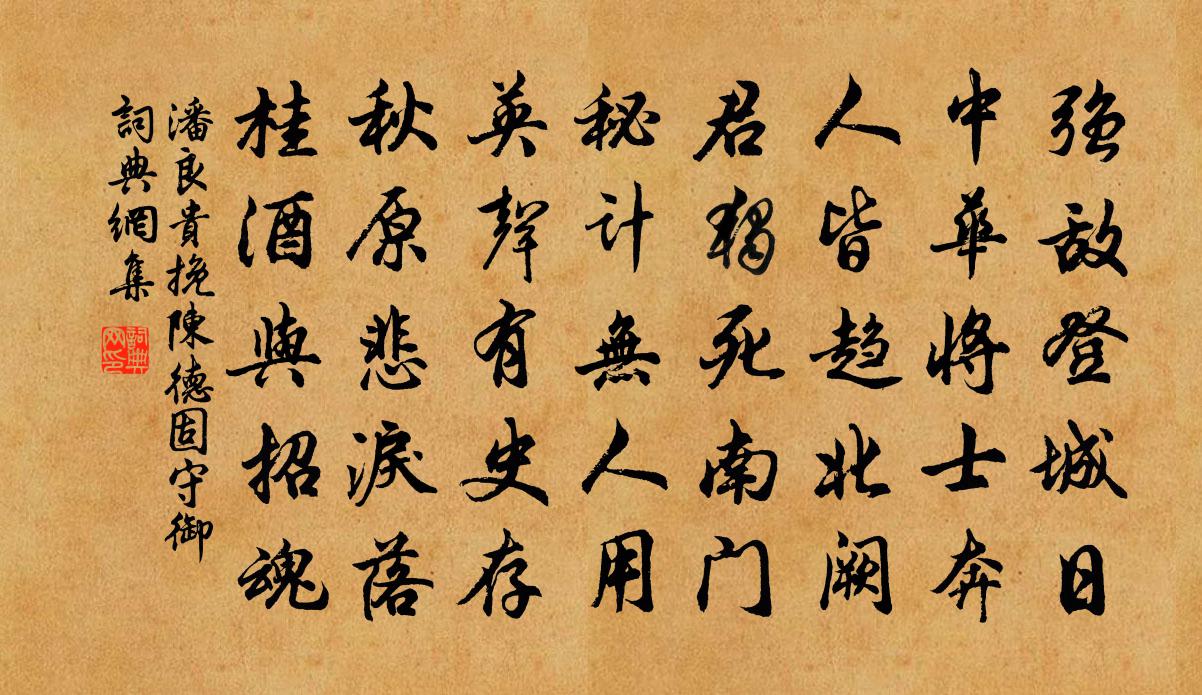 强敌登城日
中華将士奔
人皆趋北阙
君獨死南门
秘计無人用
英聲有史存
秋原悲淚落
桂酒與招魂
潘良貴挽陳德固守御
詞典網集
詞典网印